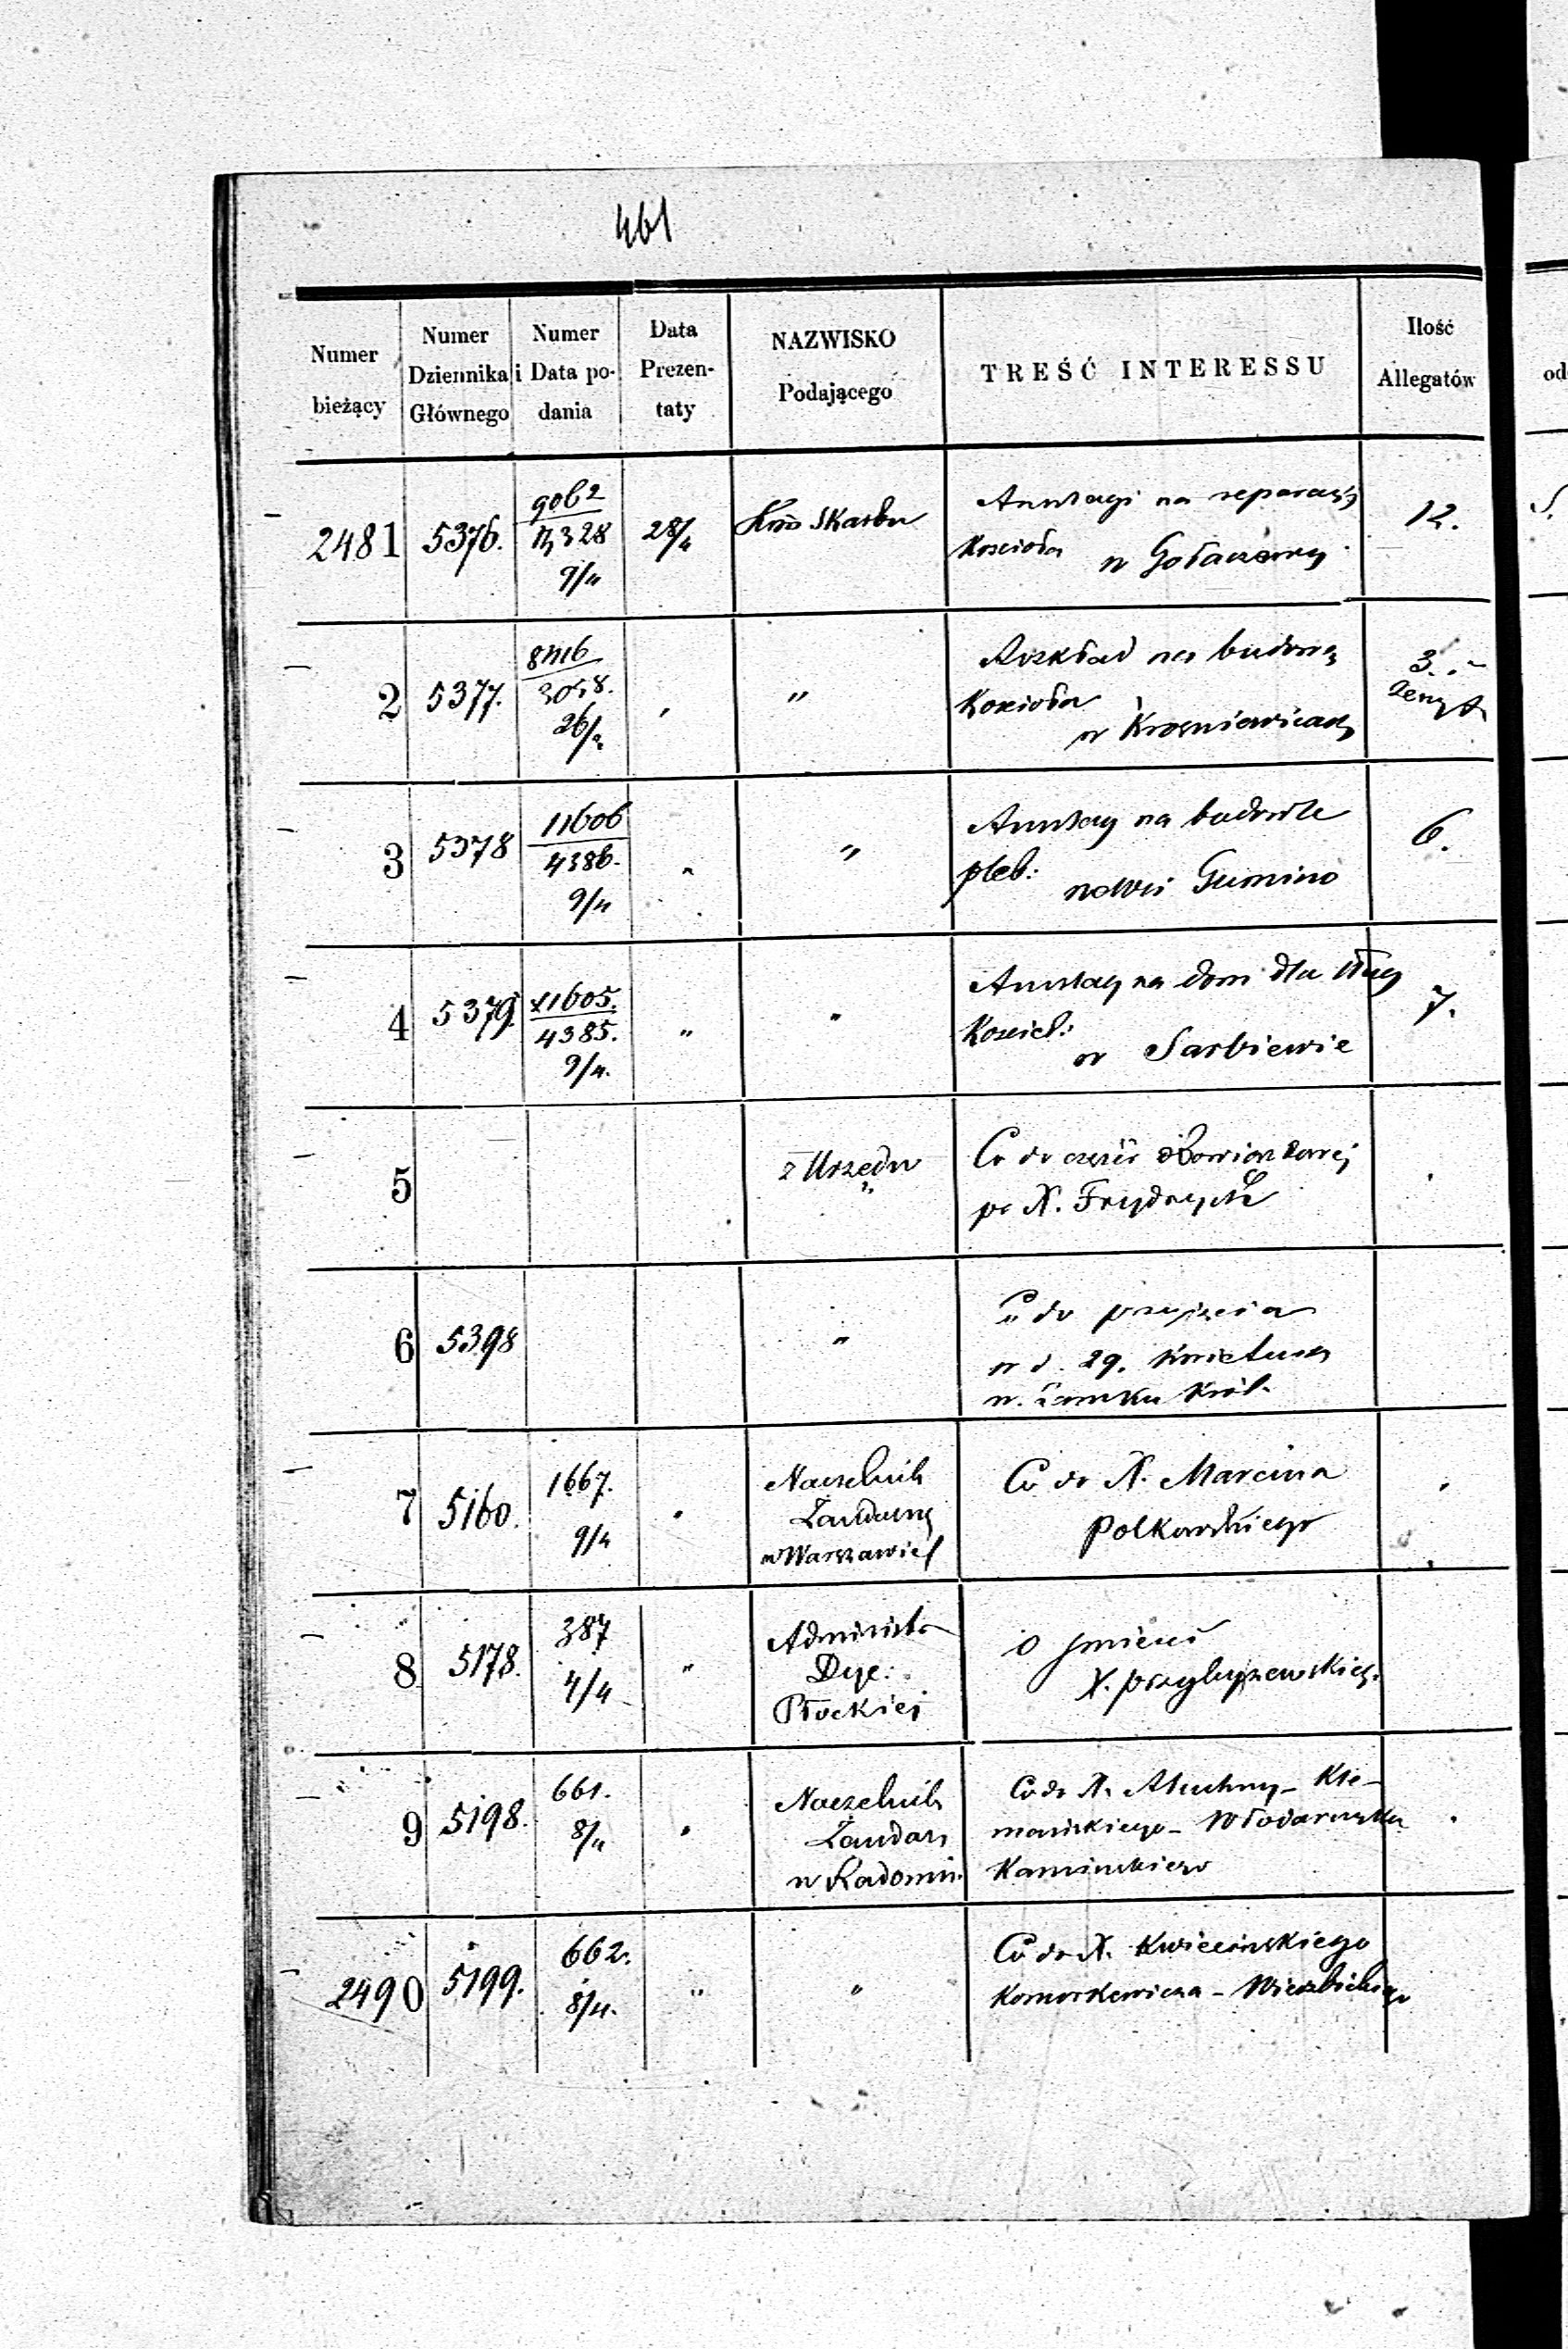 461
Numer bieżący | Numer Dziennika Głównego | Numer i Data podania | Data Prezentaty | NAZWISKO Podającego | TREŚĆ INTERESSU | Ilość Allegatów
2481 | 5376. | 9062 / 11328 9/4 | 28/4 | Kom Skarbu | Anszlagi na reparację
Kościoła w Gołaczewy | 12.
2 | 5377. | 3058. 26/ | " | " | Rozkład na budowę
Kościoła
w Krośniewicach | 3.
zeszyt
3 | 5378 | 11606 / 4386. 9/4 | " | " | Anszlag na budowle
pleb: we Wsi Gumino | 6.
4 | 5379. | 11605. / 4385. 9/4. | " | " | Anszlag na dom dla sług
Kościel: w Sarbiewie | 7.
5 | z Urzędu | Co do części obowiązkowej
po X. Frydrychu
6 | 5398 | " | Co do przyjęcia
w d. 29. Kwietnia
w Zamku Król.
7 | 5160. | 1667. 9/4 | " | Naczelnik
Żandarm
w Warszawie | Co do X. Marcina
Polkowskiego
8 | 5178. | 387 4/4 | " | Administr
Dye:
Płockiej | O śmierci
X. Przyłuszewskieg.
9 | 5198. | 661. 8/4 | " | Naczelnik
Żandar
w Radomiu. | Co do X. Kle-
mańskiego - Włodarczyka
Kamińskiego
2490 | 5199. | 662. 8/4. | " | " | Co do X. Kwiecińskiego
Komorkewicza - Wierzbickiego
od